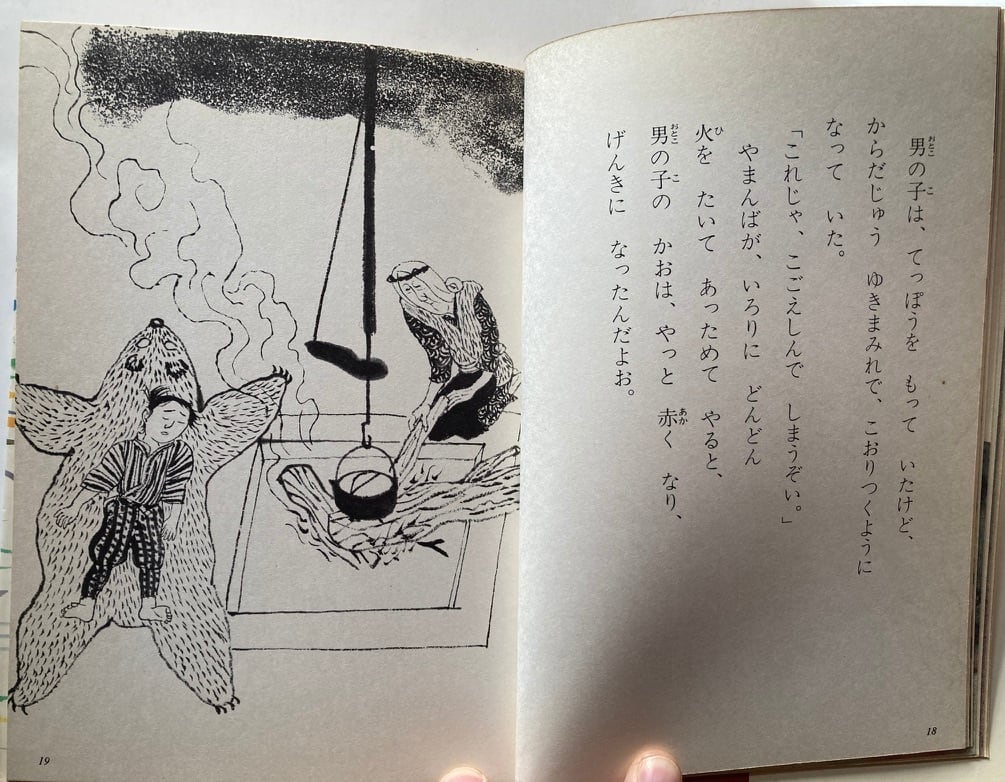 男の子は、てっぽうを もって いたけど、
からだじゅう ゆきまみれで、こおりつくように
なって いた。
「これじゃ、こごえしんで しまうぞい。」
やまんばが、いろりに どんどん
火を たいて あっためて やると、
男の子の かおは、やっと 赤く なり、
げんきに なったんだよお。
18
19